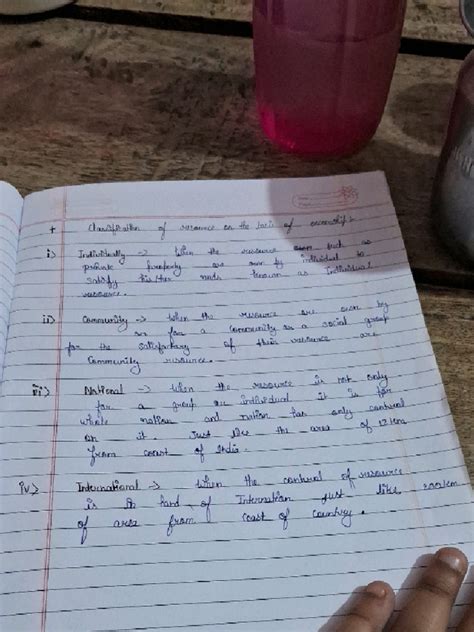 + Classification of resource on the basis of ownership :-
i) Individually → When the resource such as
private property are own by individual to
satisfy his/her needs known as Individual
resource.
ii) Community → when the resource are own by
or for a community as a social group
for the satisfactory of their resource are
Community resource.
iii) National → when the resource is not only
for a group are individual it is for
whole nation and nation has only contural
on it. Just like the area of 12 km
from coast of India.
iv) International → When the contural of resource
is in hand of Internation just like 200 km
of area from coast of country.